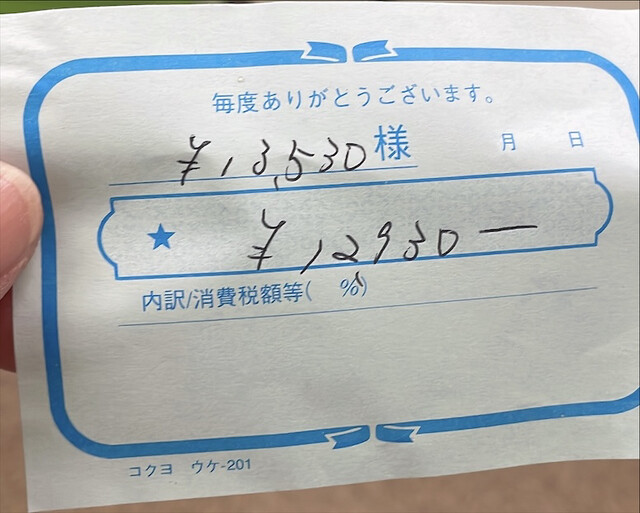 毎度ありがとうございます。
¥13,530 様 月 日
★ ¥12930—
内訳/消費税額等( %)
コクヨ ウケ-201